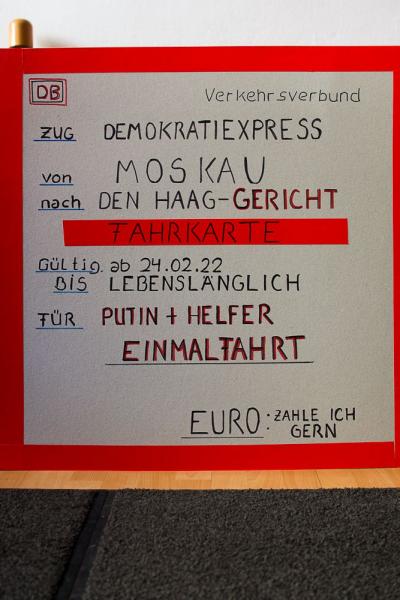 DB
Verkehrsverbund
ZUG DEMOKRATIEXPRESS
von MOSKAU
nach DEN HAAG-GERICHT
FAHRKARTE
Gültig. ab 24.02.22
BIS LEBENSLÄNGLICH
FÜR PUTIN + HELFER
EINMALFAHRT
EURO: ZAHLE ICH
GERN